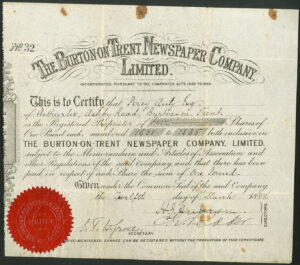 No. 32
THE BURTON-ON-TRENT NEWSPAPER COMPANY,
LIMITED.
INCORPORATED PURSUANT TO THE COMPANIES ACTS
This is to Certify that Percy Auty Esq
of Ashby Road, Burton on Trent
is the Registered Proprietor of Five Shares of
One Pound each, numbered 1031 to 1035 both inclusive in
THE BURTON-ON-TRENT NEWSPAPER COMPANY, LIMITED,
subject to the Memorandum and Articles of Association and
other Regulations of the said Company and that there has been
paid in respect of each Share the sum of One Pound.
Given under the Common Seal of the said Company,
the Twelfth day of March 188
DIRECTORS.
SECRETARY.
MENTIONED SHARES CAN BE REGISTERED WITHOUT THE PRODUCTION OF THIS CERTIFICATE.